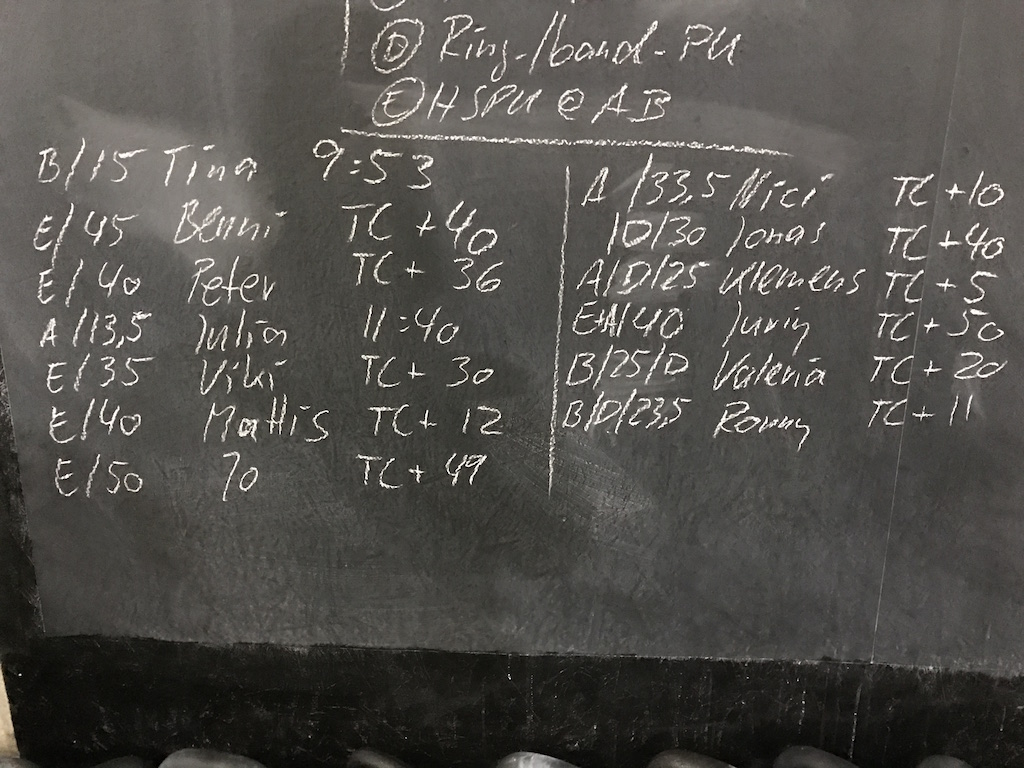 D Ring-/band-PU
E HSPU @ AB
B/15 Tina 9:53
E/45 Benni TC +40
E/40 Peter TC + 36
A/13,5 Julia 11:40
E/35 Viki TC + 30
E/40 Mattis TC + 12
E/50 Jo TC + 49
A/33,5 Nici TC +10
/D/30 Jonas TC +40
A/D/25 Klemens TC +5
40 Juriy TC + 50
B/25/D Valeria TC + 20
B/D/23,5 Ronny TC + 11